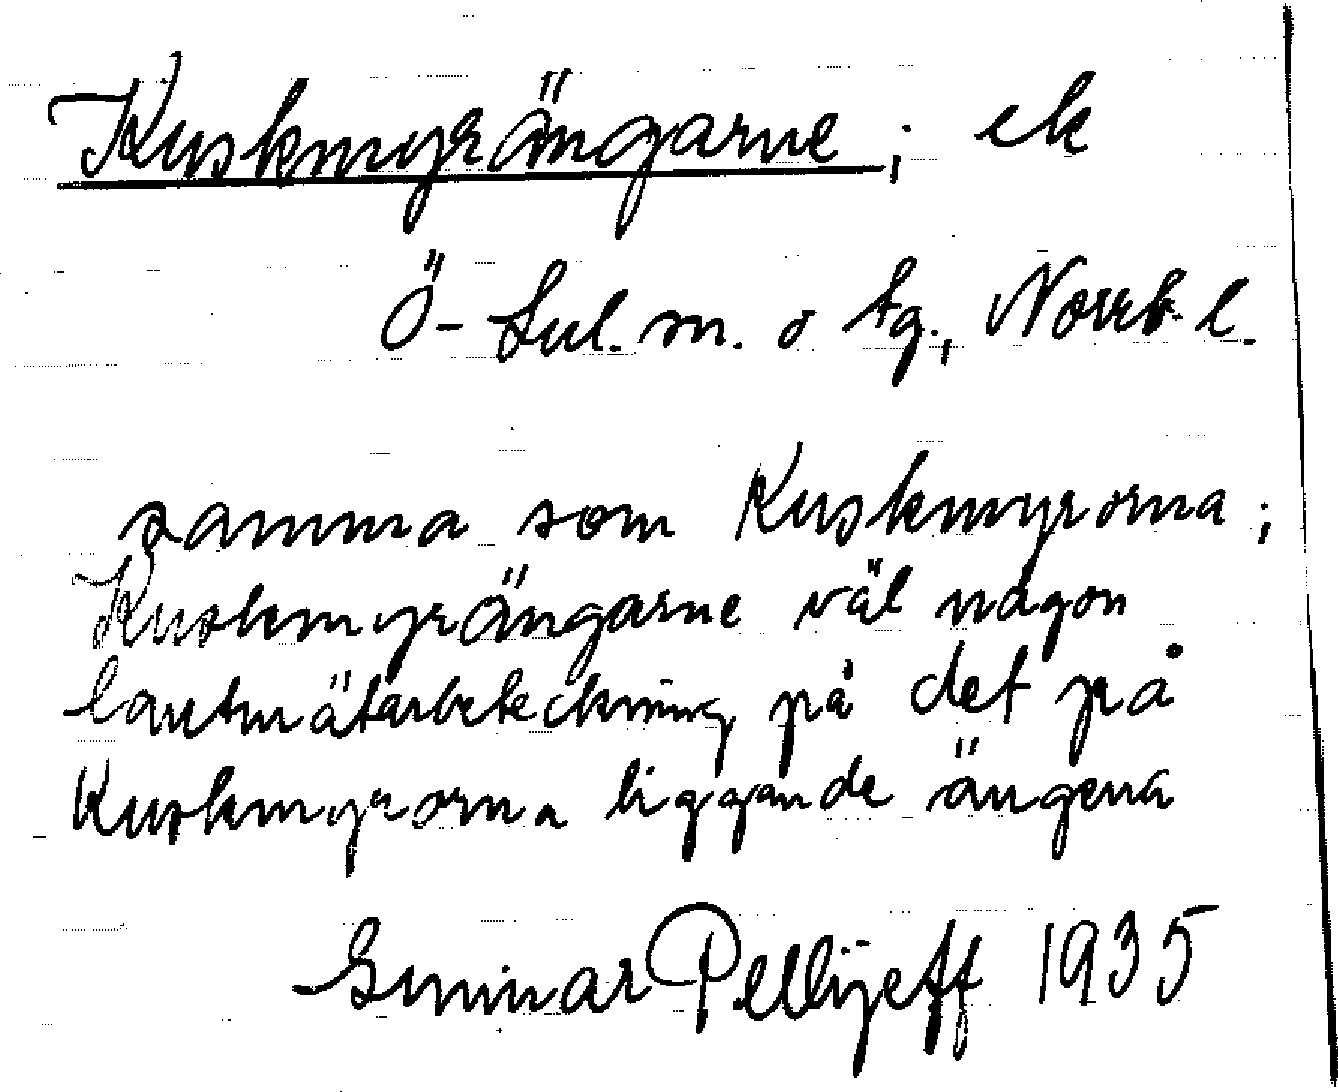 Kuskmyrängarne; ek
Ö-Lul. sn. o tg., Norrb. l.
samma som Kuskmyrorna;
Kuskmyrängarne väl någon
lantmätarbeteckning på det på
Kuskmyrorna liggande ängena
Gunnar Pellijeff 1935